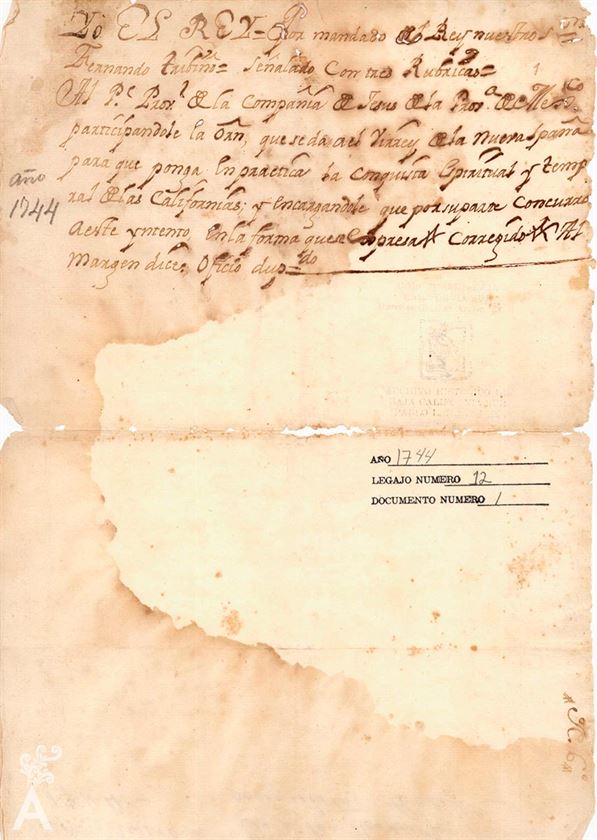 Yo EL REY = Por mandado del Rey nuestro s.r
Fernando Tribiño = Señalado Con tres Rubricas =
Al P.e Prov.l de la Compañia de Jesus de la Prov.a de Mex.co
participandole la Orn, que se da a el Virrey de la Nueva españa
para que ponga, En practica la Conquista Espiritual y temp
ral de las Californias; y Encargandole que por su parte Concurra
a este yntento, En la forma que se Expresa
Corregido
Al
Margen dice, Oficio dup.do
año
1744
1
ARCHIVO HISTORICO
BAJA CALIFORNIA SUR
PABLO L.
AÑO 1744
LEGAJO NUMERO 12
DOCUMENTO NUMERO 1
N. 6
A